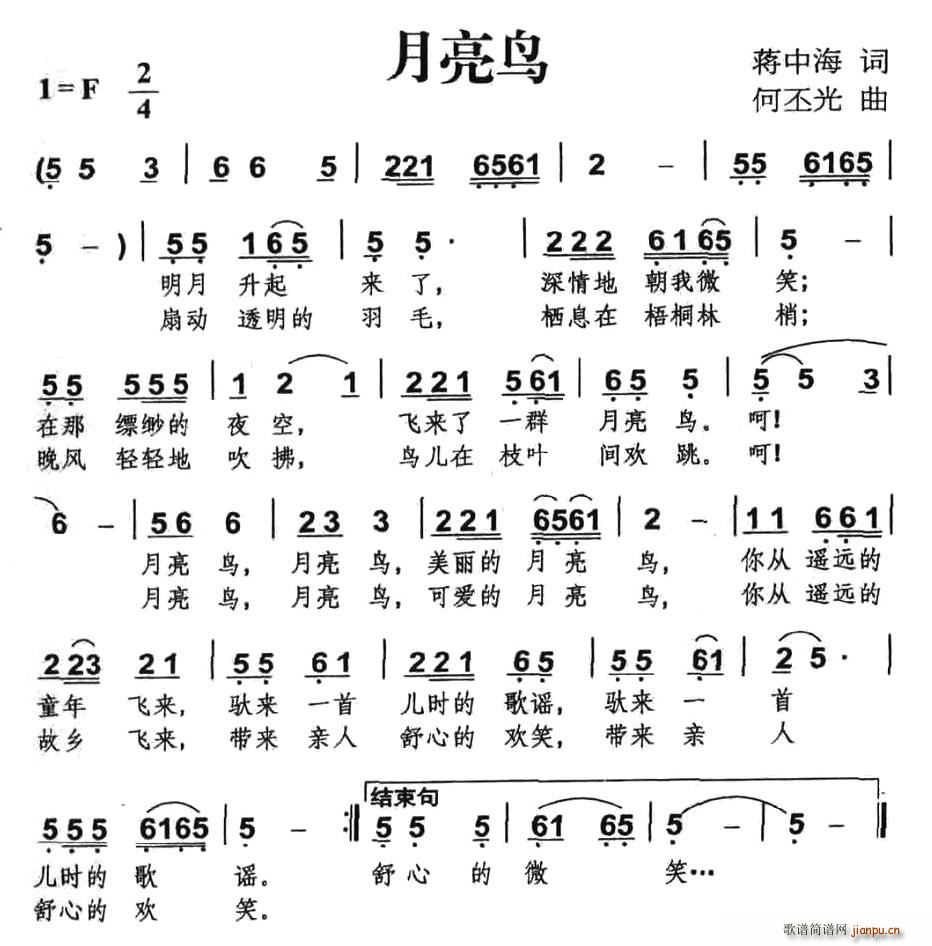 月亮鸟
1=F 2/4
蒋中海 词
何丕光 曲
(5 5 3 | 6 6 5 | 221 6561 | 2 – | 55 6165 |
5 – ) | 55 165 | 5 5· | 222 6165 | 5 – |
明月 升起 来 了, 深情地 朝我微 笑;
扇动 透明的 羽 毛, 栖息在 梧桐林 梢;
55 555 | 1 2 1 | 221 561 | 65 5 | 5 5 3 |
在那 缥缈的 夜 空, 飞来了 一群 月亮 鸟。 呵!
晚风 轻轻地 吹 拂, 鸟儿在 枝叶 间欢 跳。 呵!
6 – | 56 6 | 23 3 | 221 6561 | 2 – | 11 661 |
月亮 鸟, 月亮 鸟, 美丽的 月 亮 鸟, 你从 遥远的
月亮 鸟, 月亮 鸟, 可爱的 月 亮 鸟, 你从 遥远的
223 21 | 55 61 | 221 65 | 55 61 | 2 5· |
童年 飞来, 驮来 一首 儿时的 歌谣, 驮来 一 首
故乡 飞来, 带来 亲人 舒心的 欢笑, 带来 亲 人
555 6165 | 5 – :‖ 结束句 5 5 5 | 61 65 | 5 – | 5 – ‖
儿时的 歌 谣。 舒 心 的 微 笑…
舒心的 欢 笑。
歌谱简谱网 jianpu.cn